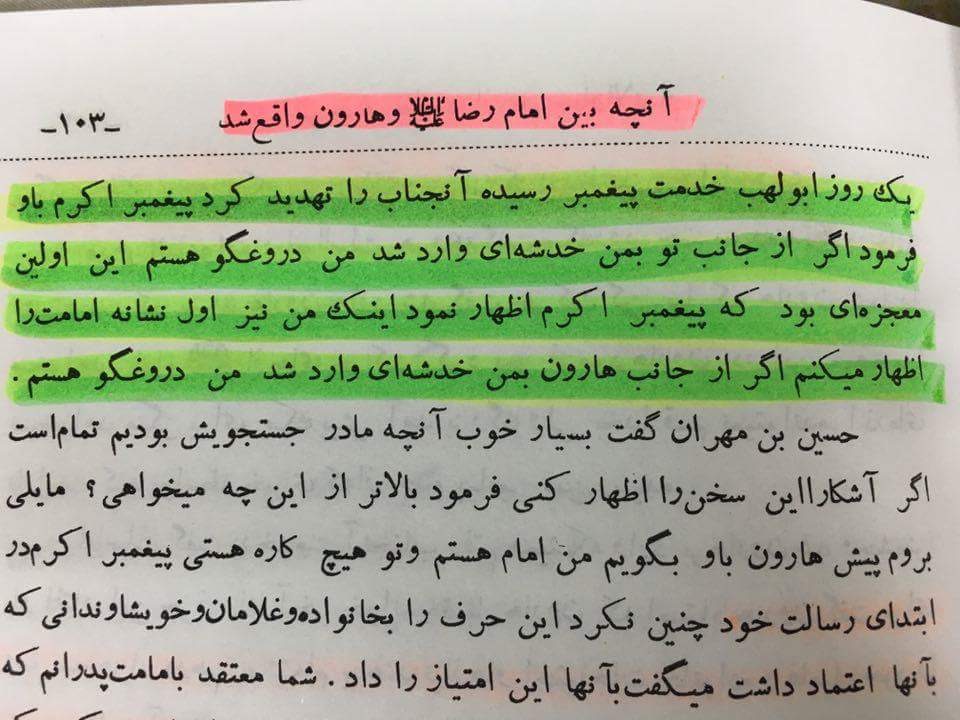 آنچه بین امام رضا علیه‌السلام و هارون واقع شد -۱۰۳-
یک روز ابولهب خدمت پیغمبر رسیده آنجناب را تهدید کرد پیغمبر اکرم باو
فرمود اگر از جانب تو بمن خدشه‌ای وارد شد من دروغگو هستم این اولین
معجزه‌ای بود که پیغمبر اکرم اظهار نمود اینک من نیز اول نشانه امامت را
اظهار میکنم اگر از جانب هارون بمن خدشه‌ای وارد شد من دروغگو هستم .
حسین بن مهران گفت بسیار خوب آنچه مادر جستجویش بودیم تمام است
اگر آشکارا این سخن را اظهار کنی فرمود بالاتر از این چه میخواهی ؟ مایلی
بروم پیش هارون باو بگویم من امام هستم و تو هیچ کاره هستی پیغمبر اکرم در
ابتدای رسالت خود چنین نکرد این حرف را بخانواده و غلامان و خویشاوندانی که
بآنها اعتماد داشت میگفت بآنها این امتیاز را داد . شما معتقد بامامت پدرانم که